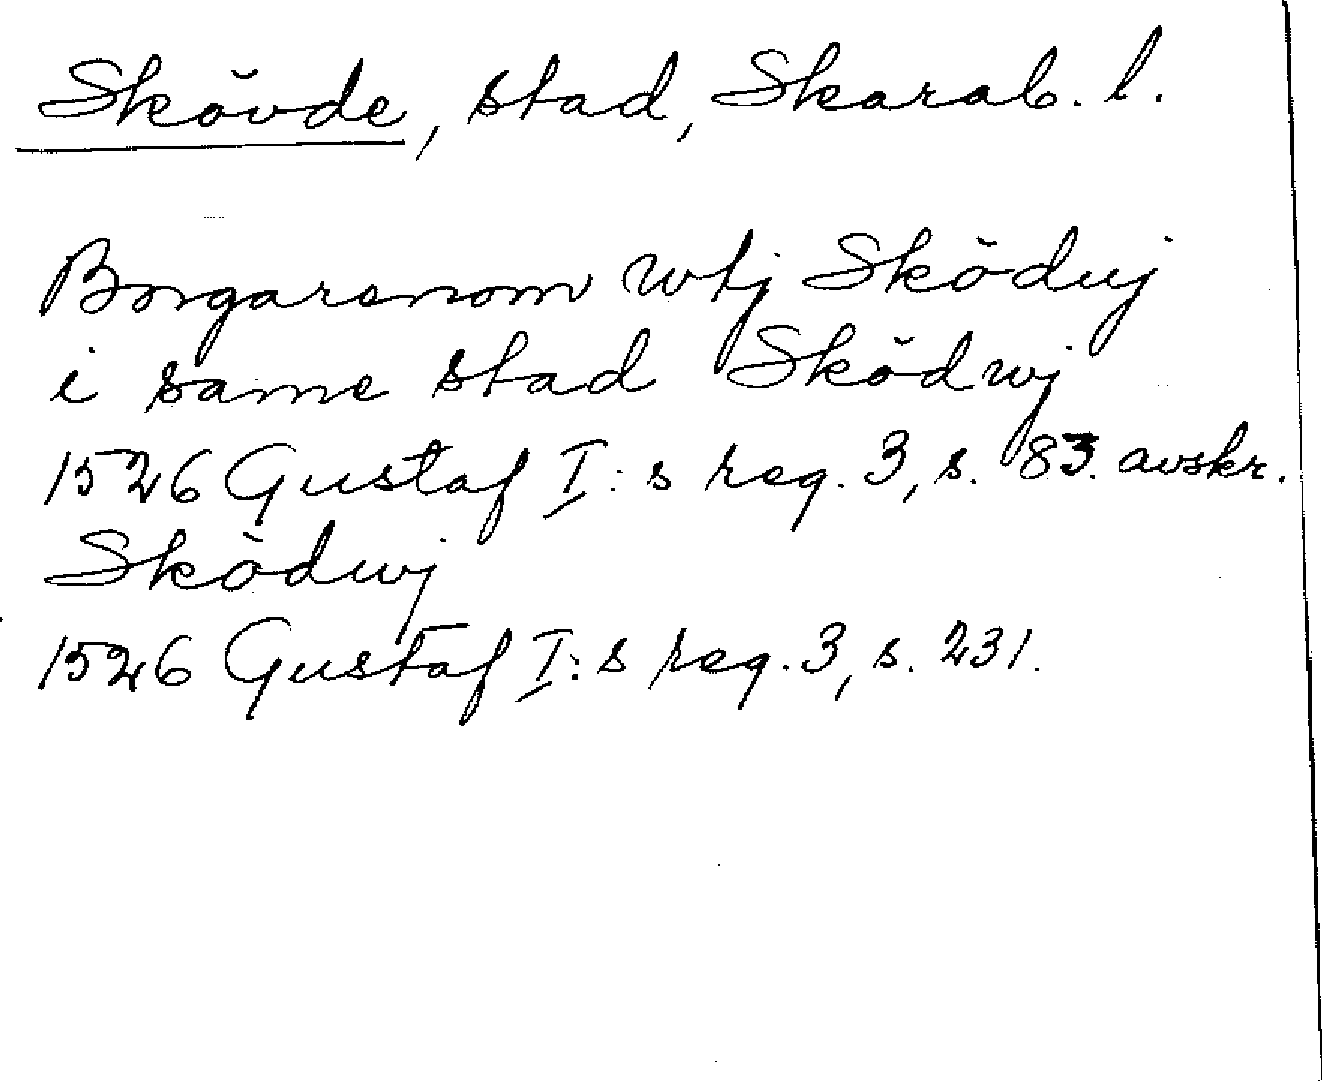 Skövde, stad, Skarab. l.
Borgarenom wtj Sködwj
i same stad Sködwj
1526 Gustaf I:s reg. 3, s. 83. avskr.
Sködwj
1526 Gustaf I:s reg. 3, s. 231.